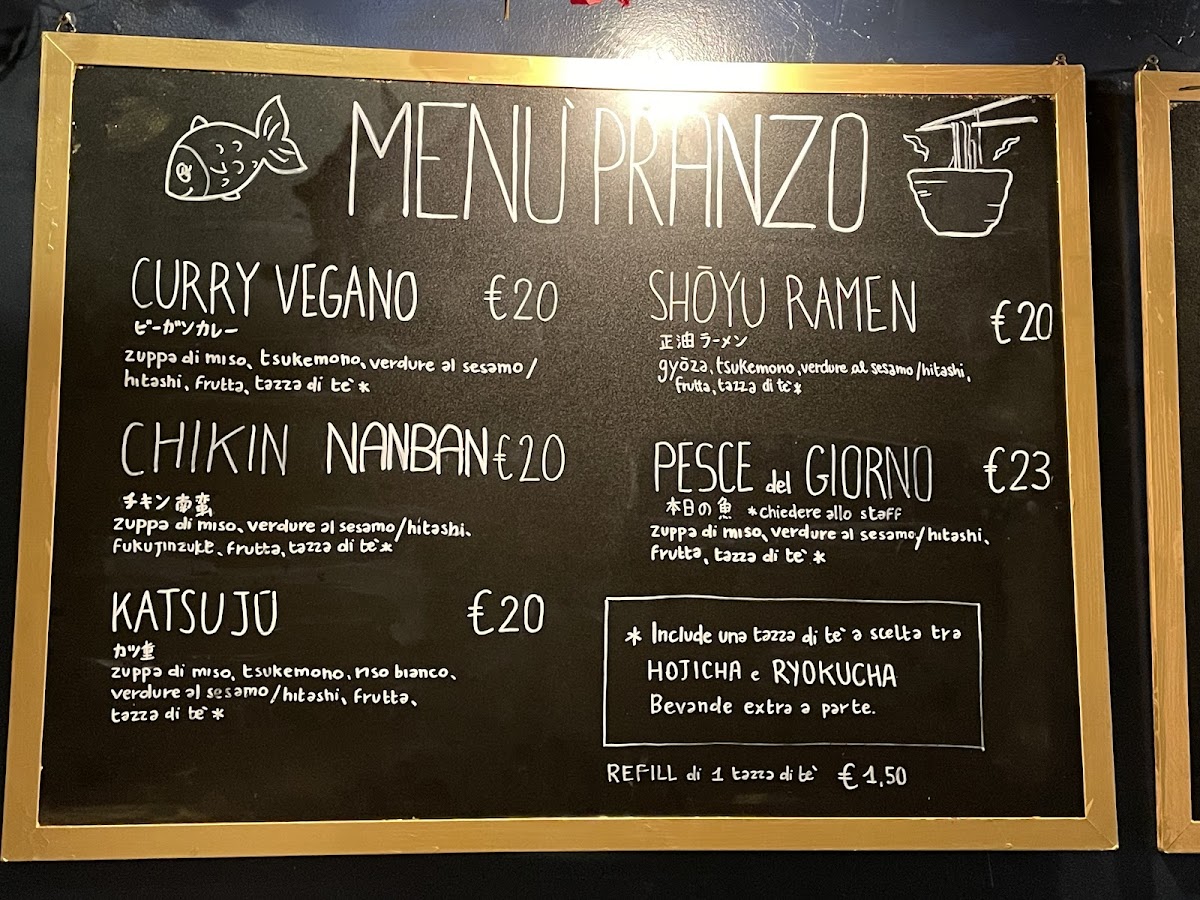 MENÙ PRANZO
CURRY VEGANO €20
ビーガンカレー
zuppa di miso, tsukemono, verdure al sesamo/
hitashi, frutta, tazza di te`*
CHIKIN NANBAN €20
チキン南蛮
zuppa di miso, verdure al sesamo/hitashi,
fukujinzuke, frutta, tazza di te`*
KATSUJŪ €20
カツ重
zuppa di miso, tsukemono, riso bianco,
verdure al sesamo/hitashi, frutta,
tazza di te`*
SHŌYU RAMEN €20
正油ラーメン
gyōza, tsukemono, verdure al sesamo/hitashi,
frutta, tazza di te`*
PESCE del GIORNO €23
本日の魚 *chiedere allo staff
zuppa di miso, verdure al sesamo/hitashi,
frutta, tazza di te`*
* Include una tazza di te` a scelta tra
HOJICHA e RYOKUCHA
Bevande extra a parte.
REFILL di 1 tazza di te` €1,50